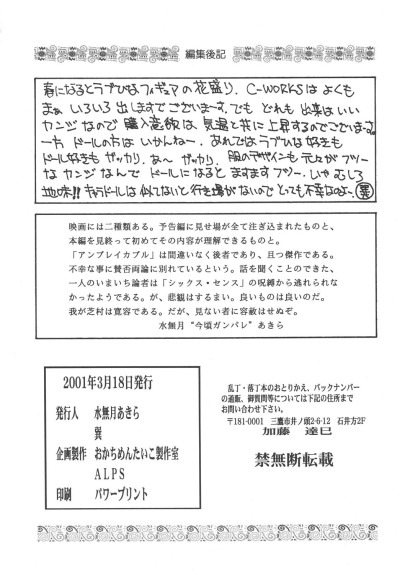 編集後記
春になるとラブひなフィギュアの花盛り。C-WORKSはよくも
まぁいろいろ出しますでございまーす。でもどれも出来はいい
カンジなので購入意欲は気温と共に上昇するのでございまーす
一方ドールの方はいかんねー。あれではラブひな好きも
ドール好きもガッカリ。あ〜ガッカリ。服のデザインも元々がフツー
なカンジなんでドールになるとますますフツー。いやむしろ
地味!!キャラドールは似てないと行き場がないのでとっても不幸なのよ。巽
映画には二種類ある。予告編に見せ場が全て注ぎ込まれたものと、
本編を見終って初めてその内容が理解できるものと。
「アンブレイカブル」は間違いなく後者であり、且つ傑作である。
不幸な事に賛否両論に別れているという。話を聞くことのできた、
一人のいまいち論者は「シックス・センス」の呪縛から逃れられな
かったようである。が、悲観はするまい。良いものは良いのだ。
我が芝村は寛容である。だが、見ない者に容赦はせぬぞ。
水無月“今頃ガンパレ”あきら
2001年3月18日発行
発行人 水無月あきら
巽
企画製作 おかちめんたいこ製作室
ALPS
印刷 パワープリント
乱丁・落丁本のおとりかえ、バックナンバー
の通販、御質問等については下記の住所まで
お問い合わせ下さい。
〒181-0001 三鷹市井ノ頭2-6-12 石井方2F
加藤 達巳
禁無断転載